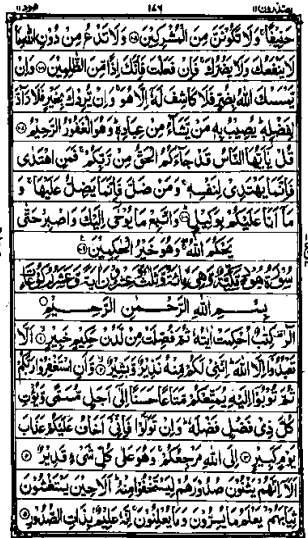 يعتذرون ١١ ١٤٩ هود ١١
حَنِيْفًا ۚ وَلَا تَكُوْنَنَّ مِنَ الْمُشْرِكِيْنَ ۝ وَلَا تَدْعُ مِنْ دُوْنِ اللّٰهِ مَا
لَا يَنْفَعُكَ وَلَا يَضُرُّكَ ۚ فَاِنْ فَعَلْتَ فَاِنَّكَ اِذًا مِّنَ الظّٰلِمِيْنَ ۝ وَاِنْ
يَّمْسَسْكَ اللّٰهُ بِضُرٍّ فَلَا كَاشِفَ لَهٗٓ اِلَّا هُوَ ۚ وَاِنْ يُّرِدْكَ بِخَيْرٍ فَلَا رَآدَّ
لِفَضْلِهٖ ؕ يُصِيْبُ بِهٖ مَنْ يَّشَآءُ مِنْ عِبَادِهٖ ؕ وَهُوَ الْغَفُوْرُ الرَّحِيْمُ ۝
قُلْ يٰٓاَيُّهَا النَّاسُ قَدْ جَآءَكُمُ الْحَقُّ مِنْ رَّبِّكُمْ ۚ فَمَنِ اهْتَدٰى
فَاِنَّمَا يَهْتَدِيْ لِنَفْسِهٖ ۚ وَمَنْ ضَلَّ فَاِنَّمَا يَضِلُّ عَلَيْهَا ۚ وَ
مَآ اَنَا عَلَيْكُمْ بِوَكِيْلٍ ۝ وَاتَّبِعْ مَا يُوْحٰٓى اِلَيْكَ وَاصْبِرْ حَتّٰى
يَحْكُمَ اللّٰهُ ۚ وَهُوَ خَيْرُ الْحٰكِمِيْنَ ۝
سُوْرَةُ هُوْدٍ مَّكِّيَّةٌ وَّهِيَ مِائَةٌ وَّثَلٰثٌ وَّعِشْرُوْنَ اٰيَةً وَّعَشْرُ رُكُوْعَاتٍ
بِسْمِ اللّٰهِ الرَّحْمٰنِ الرَّحِيْمِ ۝
الٓرٰ ۫ كِتٰبٌ اُحْكِمَتْ اٰيٰتُهٗ ثُمَّ فُصِّلَتْ مِنْ لَّدُنْ حَكِيْمٍ خَبِيْرٍ ۝ اَلَّا
تَعْبُدُوْٓا اِلَّا اللّٰهَ ؕ اِنَّنِيْ لَكُمْ مِّنْهُ نَذِيْرٌ وَّبَشِيْرٌ ۝ وَّاَنِ اسْتَغْفِرُوْا رَبَّكُمْ
ثُمَّ تُوْبُوْٓا اِلَيْهِ يُمَتِّعْكُمْ مَّتَاعًا حَسَنًا اِلٰٓى اَجَلٍ مُّسَمًّى وَّيُؤْتِ
كُلَّ ذِيْ فَضْلٍ فَضْلَهٗ ؕ وَاِنْ تَوَلَّوْا فَاِنِّيْٓ اَخَافُ عَلَيْكُمْ عَذَابَ
يَوْمٍ كَبِيْرٍ ۝ اِلَى اللّٰهِ مَرْجِعُكُمْ ۚ وَهُوَ عَلٰى كُلِّ شَيْءٍ قَدِيْرٌ ۝
اَلَآ اِنَّهُمْ يَثْنُوْنَ صُدُوْرَهُمْ لِيَسْتَخْفُوْا مِنْهُ ؕ اَلَا حِيْنَ يَسْتَغْشُوْنَ
ثِيَابَهُمْ ۙ يَعْلَمُ مَا يُسِرُّوْنَ وَمَا يُعْلِنُوْنَ ۚ اِنَّهٗ عَلِيْمٌۢ بِذَاتِ الصُّدُوْرِ ۝